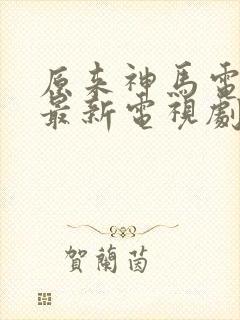 原来神馬電
最新電視劇
賀蘭茵